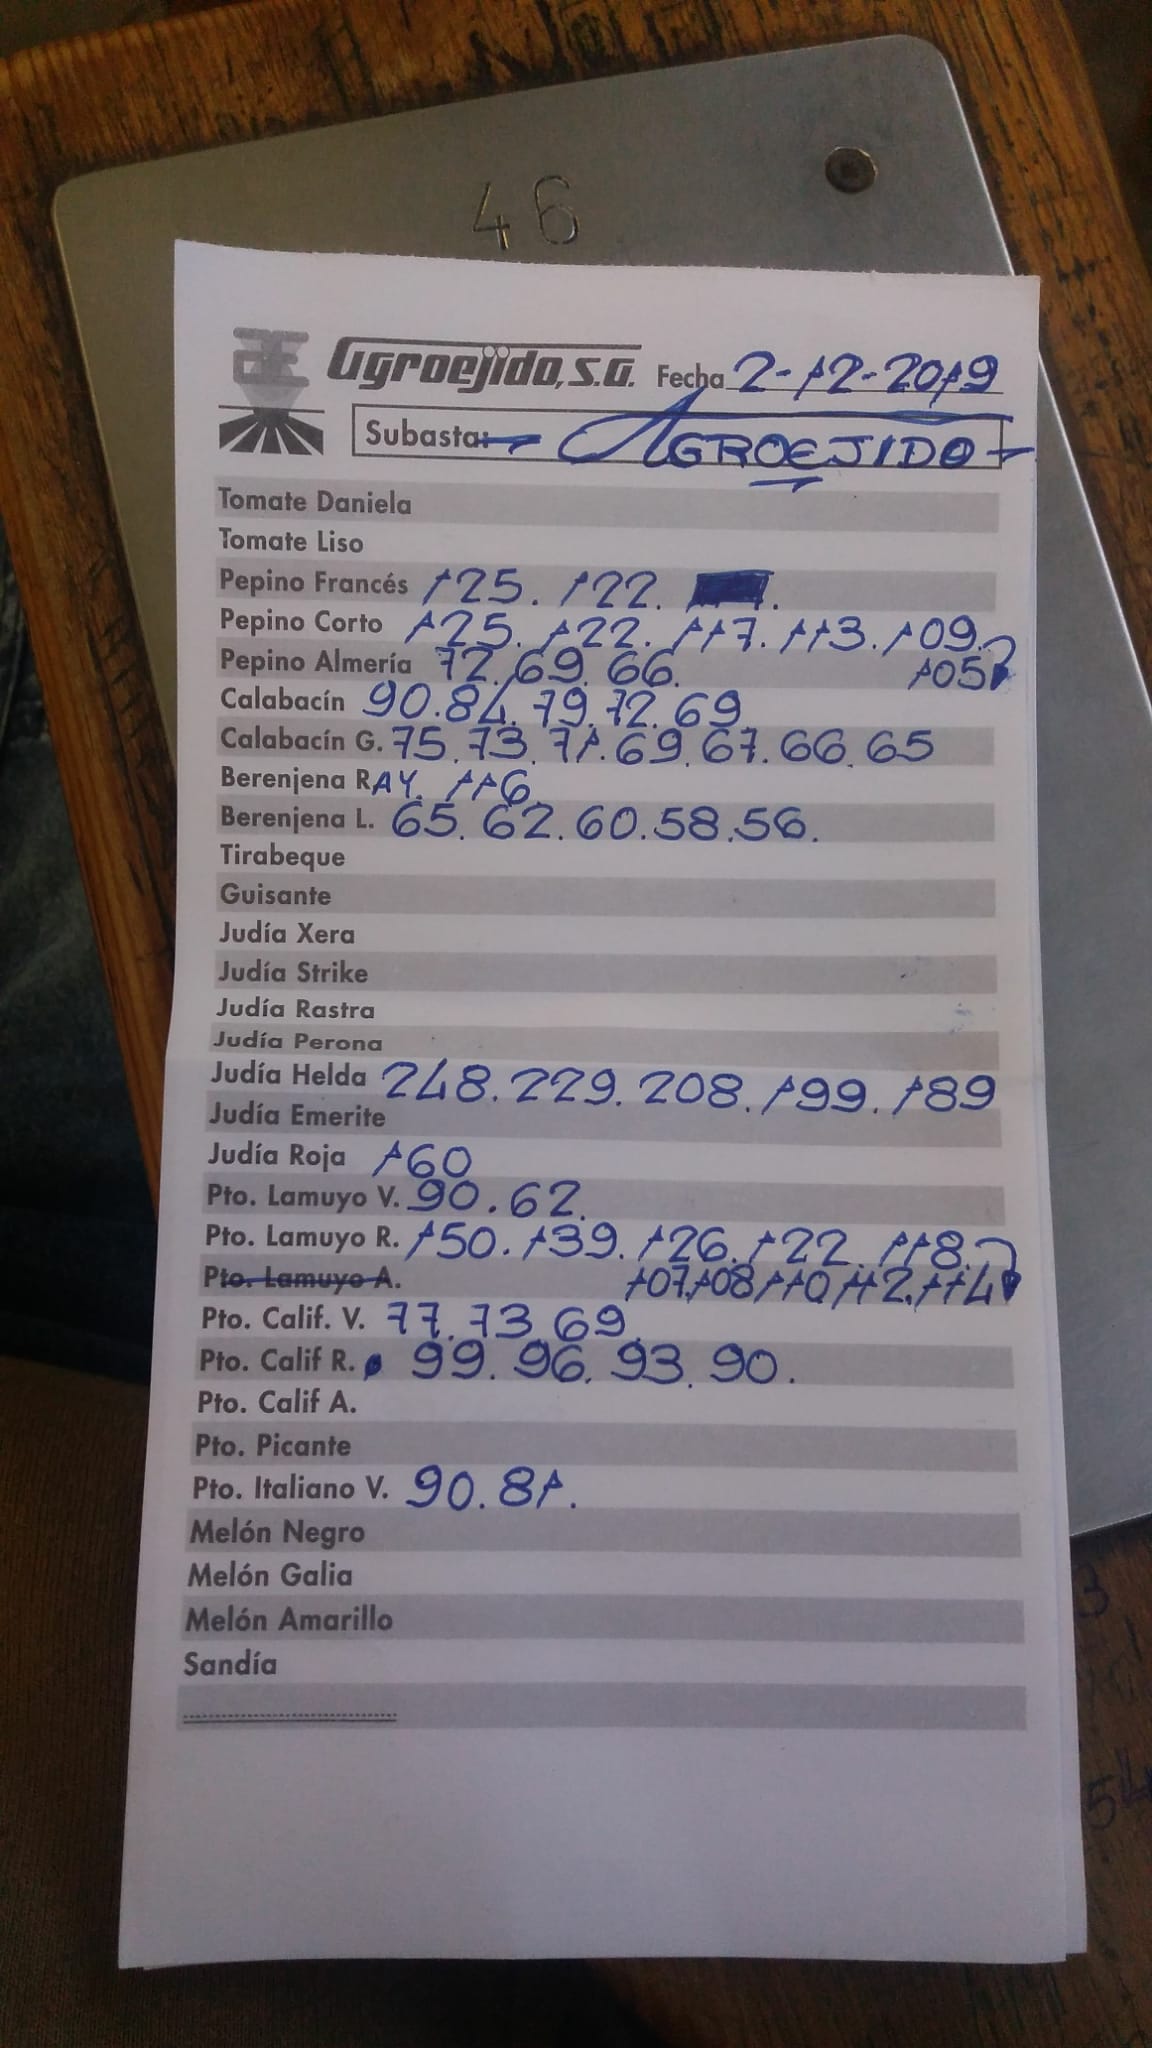 46
Agroejido, S.A. Fecha 2-12-2019
Subasta: AGROEJIDO
Tomate Daniela
Tomate Liso
Pepino Francés 125. 122.
Pepino Corto 125. 122. 117. 113. 109.
105
Pepino Almería 72. 69. 66.
Calabacín 90. 84. 79. 72. 69
Calabacín G. 75. 73. 71. 69. 67. 66. 65
Berenjena RAY. 116.
Berenjena L. 65. 62. 60. 58. 56.
Tirabeque
Guisante
Judía Xera
Judía Strike
Judía Rastra
Judía Perona
Judía Helda 248. 229. 208. 199. 189
Judía Emerite
Judía Roja 160
Pto. Lamuyo V. 90. 62.
Pto. Lamuyo R. 150. 139. 126. 122. 118.
Pto. Lamuyo A. 107. 108. 110. 112. 114
Pto. Calif. V. 77. 73. 69.
Pto. Calif R. 99. 96. 93. 90.
Pto. Calif A.
Pto. Picante
Pto. Italiano V. 90. 81.
Melón Negro
Melón Galia
Melón Amarillo
Sandía